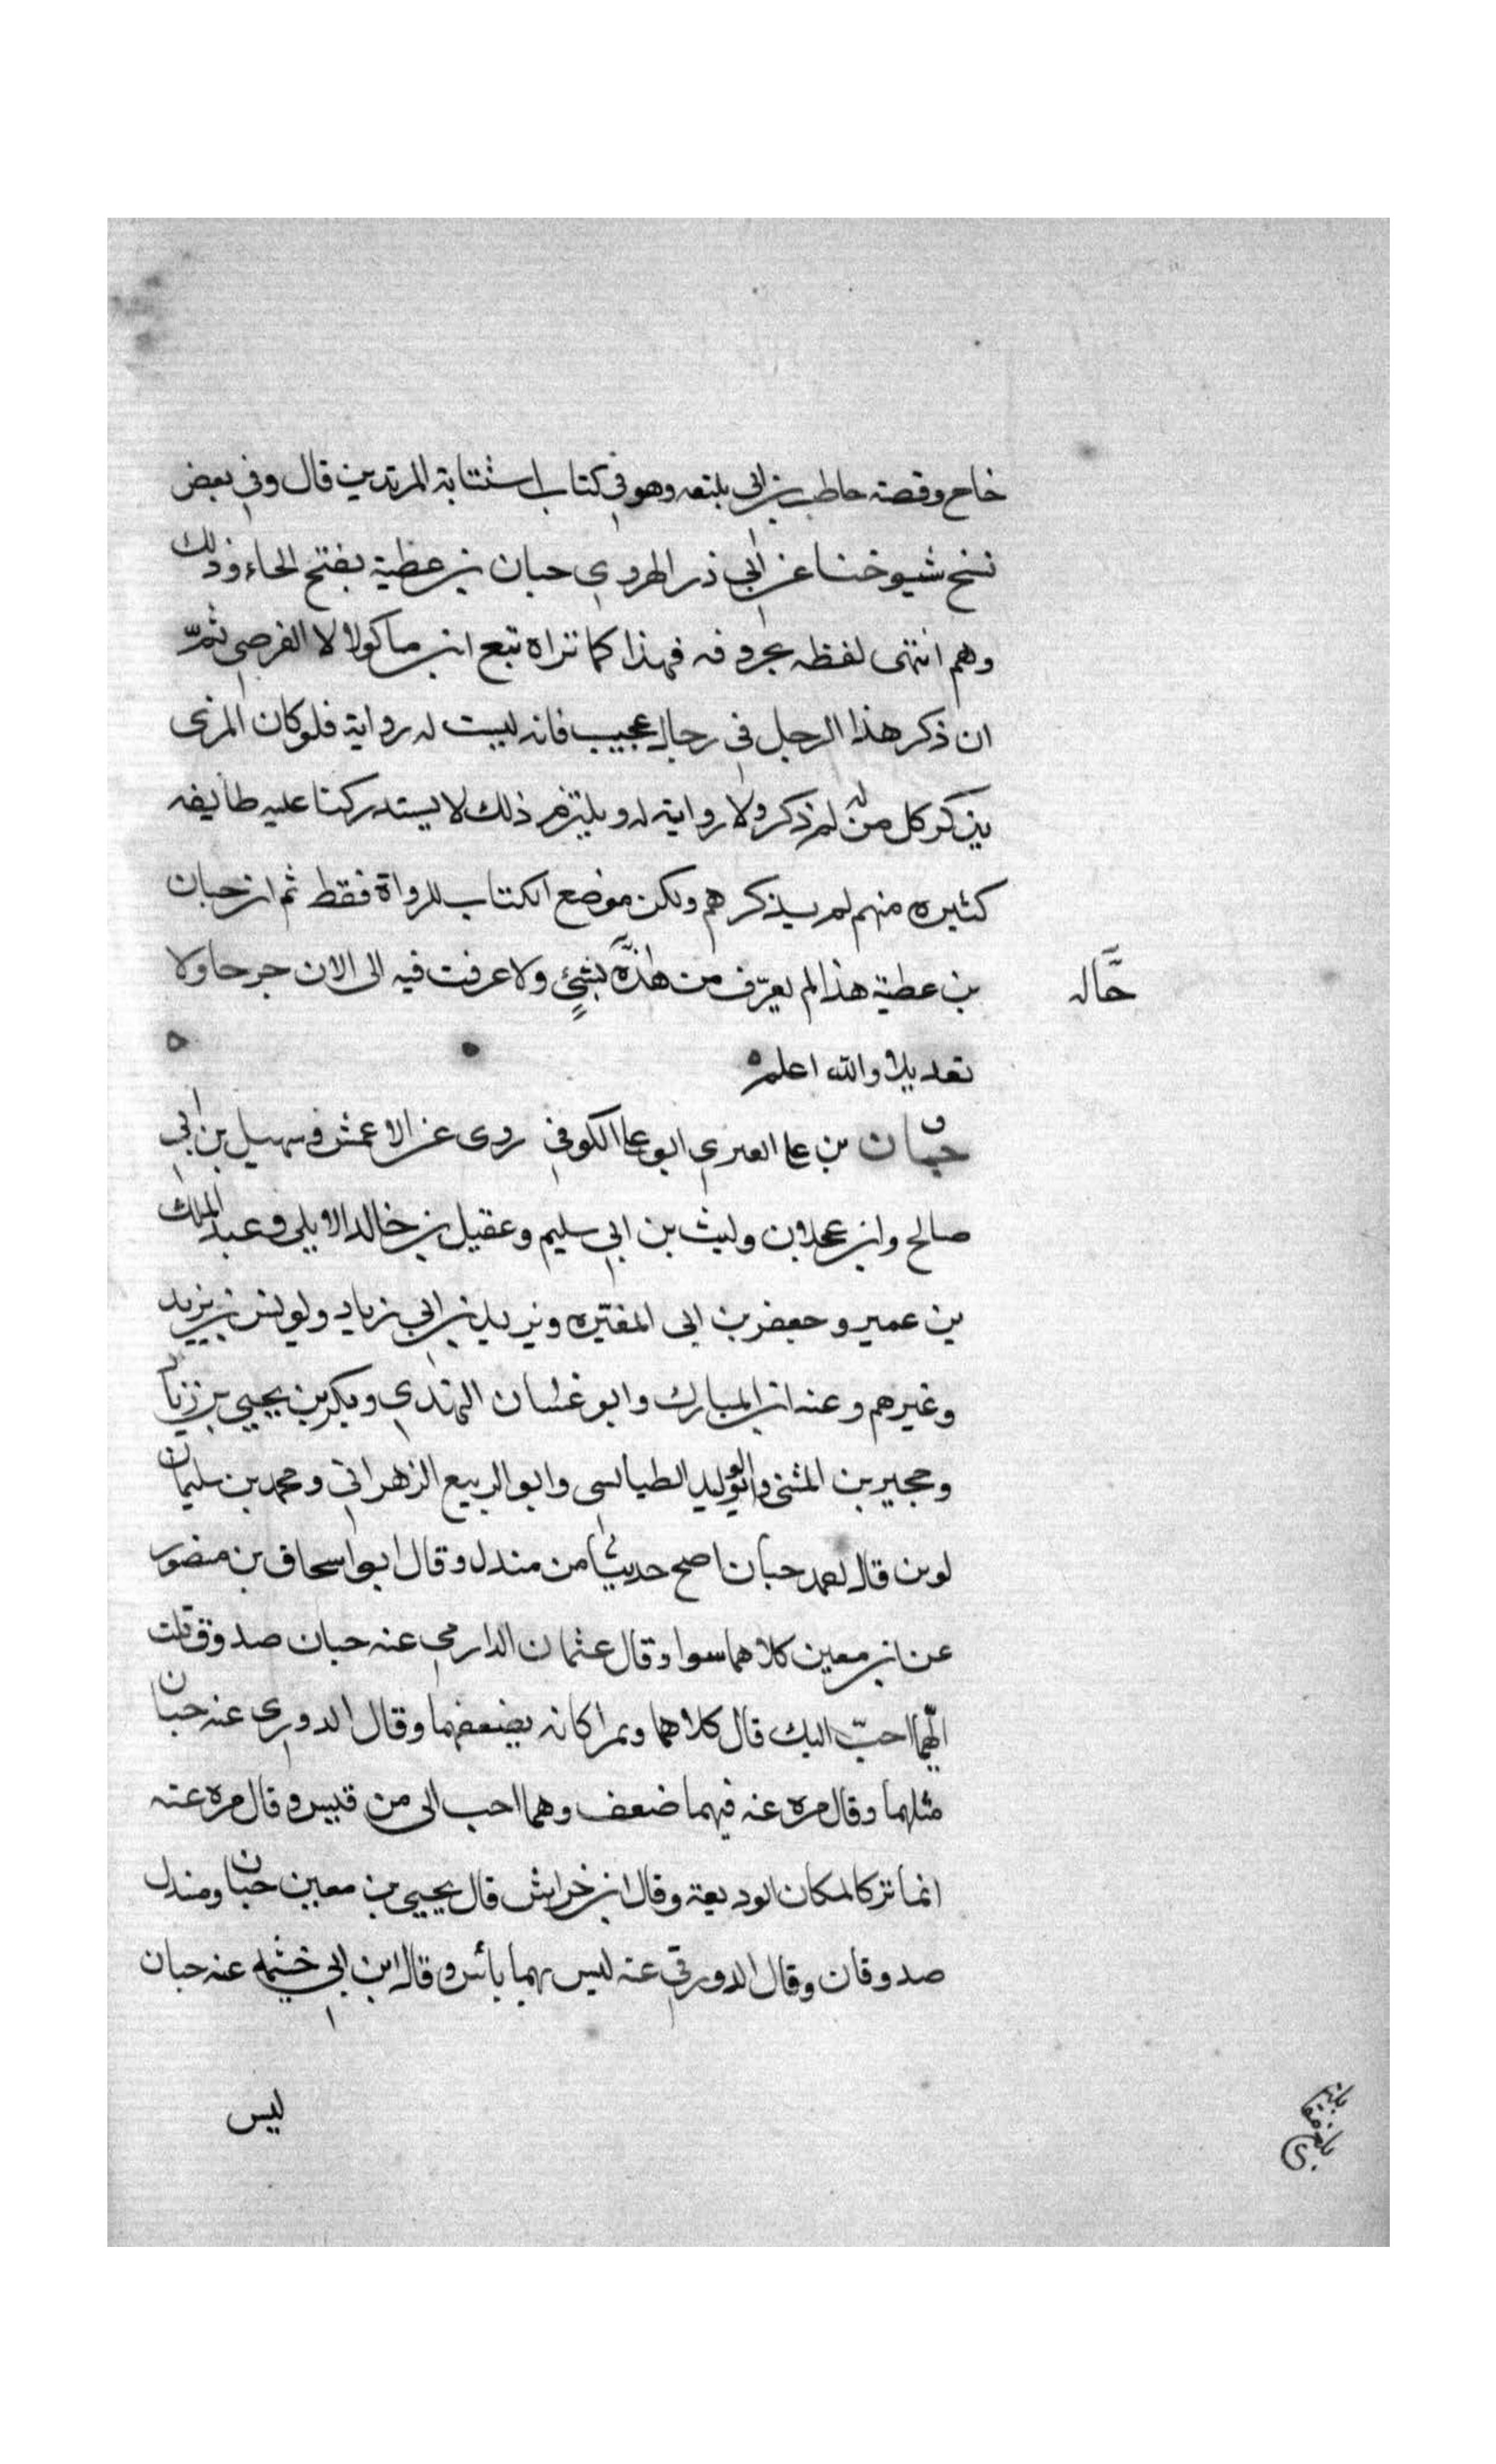 خاح وقصة حاطب بن ابي بلتعه وهو في كتاب استتابة المرتدين قال وفي بعض
نسخ شيوخنا عن ابي ذر الهروي حبان بن عطية بفتح الحاء وذلك
وهم انتهى لفظه بحروفه فهذا كما تراه تبع ابن ماكولا لا الفرضي ثمّ
ان ذكر هذا الرجل في رجال عجيب فانه ليست له رواية فلو كان المزي
يذكر كل من له ذكر ولا رواية له ويلتزم ذلك لاستدركنا عليه طايفه
كثيره منهم لم يذكرهم ولكن موضع الكتاب للرواة فقط ثم ان حبان
بن عطية هذا لم يعرّف من هذه بشئ ولا عرفت فيه الى الان جرحا ولا
حَّاله
تعديلا والله اعلم ه
حبان بن علي العنزي ابو علي الكوفي روى عن الاعمش وسهيل بن ابي
صالح وابن عجلان وليث بن ابي سليم وعقيل بن خالد الايلي وعبد الملك
بن عمير وجعفر بن ابي المغيره ويزيد بن ابي زياد ويونس بن يزيد
وغيرهم وعنه ابن المبارك وابو غسان النهدي وبكر بن يحيى بن زبان
وحجير بن المثنى وابو الوليد الطيالسي وابو الربيع الزهراني ومحمد بن سليمان
لوين قال احمد حبان اصح حديثا من مندل وقال ابو اسحاق بن منصور
عن ابن معين كلاهما سوا وقال عثمان الدارمي عنه حبان صدوق قلت
ايّهما احبّ اليك قال كلاهما وتمرا كانه يضعفهما وقال الدوري عنه حبان
مثلهما وقال مره عنه فيهما ضعف وهما احب الى من قيس وقال مره عنه
انما تركا لمكان الوديعة وقال ابن خراش قال يحيى بن معين حبان ومندل
صدوقان وقال الدورقي عنه ليس بهما بأس وقال ابن ابي خيثمه عنه حبان
ليس